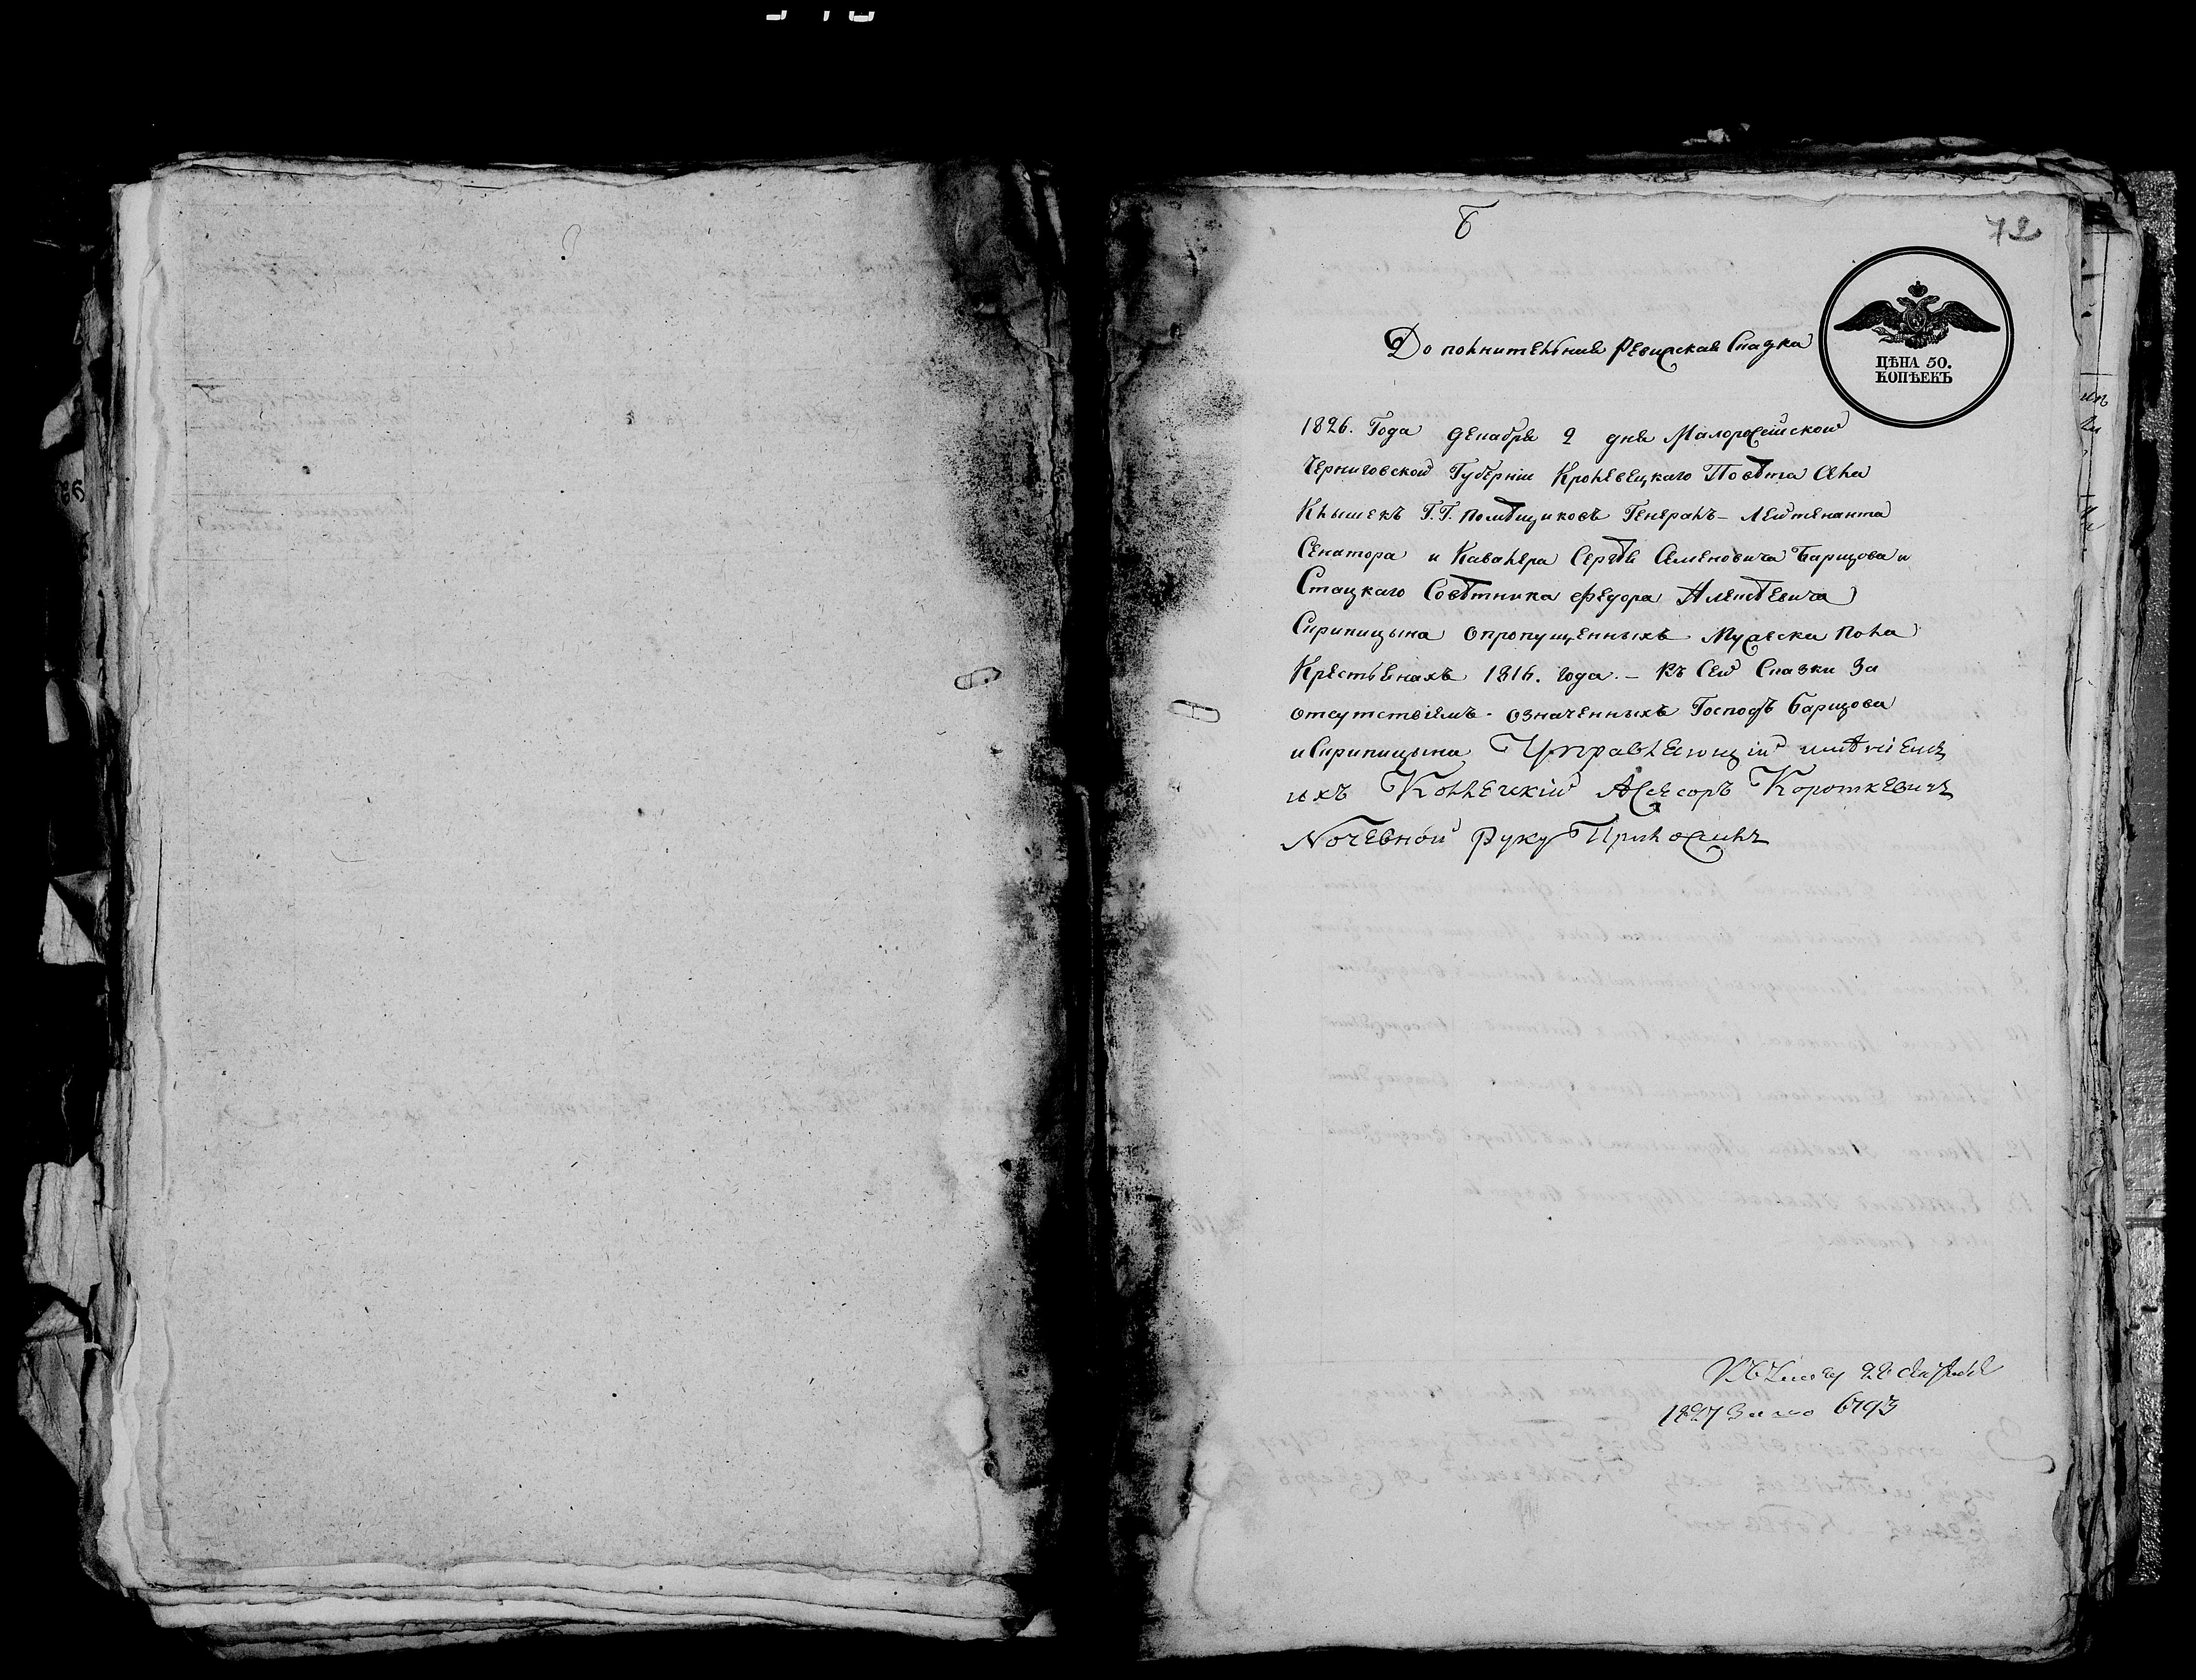 72
ЦѢНА 50.
КОПѢЕКЪ
Дополнителная Ревизская Сказка
1826. Года декабря 2 дня Малоросейской
Черниговской Губерніи Кролевецкаго Повѣта Села
Клышекъ Г.Г. помѣщиковъ Генералъ-Лейтенанта
Сенатора и Кавалера Сергѣя Семеновича Барщова и
Стацкаго Совѣтника Федора Алексѣевича
Скрипицына опропущенныхъ Мужеска пола
Крестьянахъ 1816. года. - Къ Сей Сказки За
отсутствіемъ означенныхъ Господъ Барщова
и Скрипицына Управляющій имѣніемъ
ихъ Коллежскій Асесоръ Короткевичъ
Ночевной Руку Приложилъ
1827 За № 6793